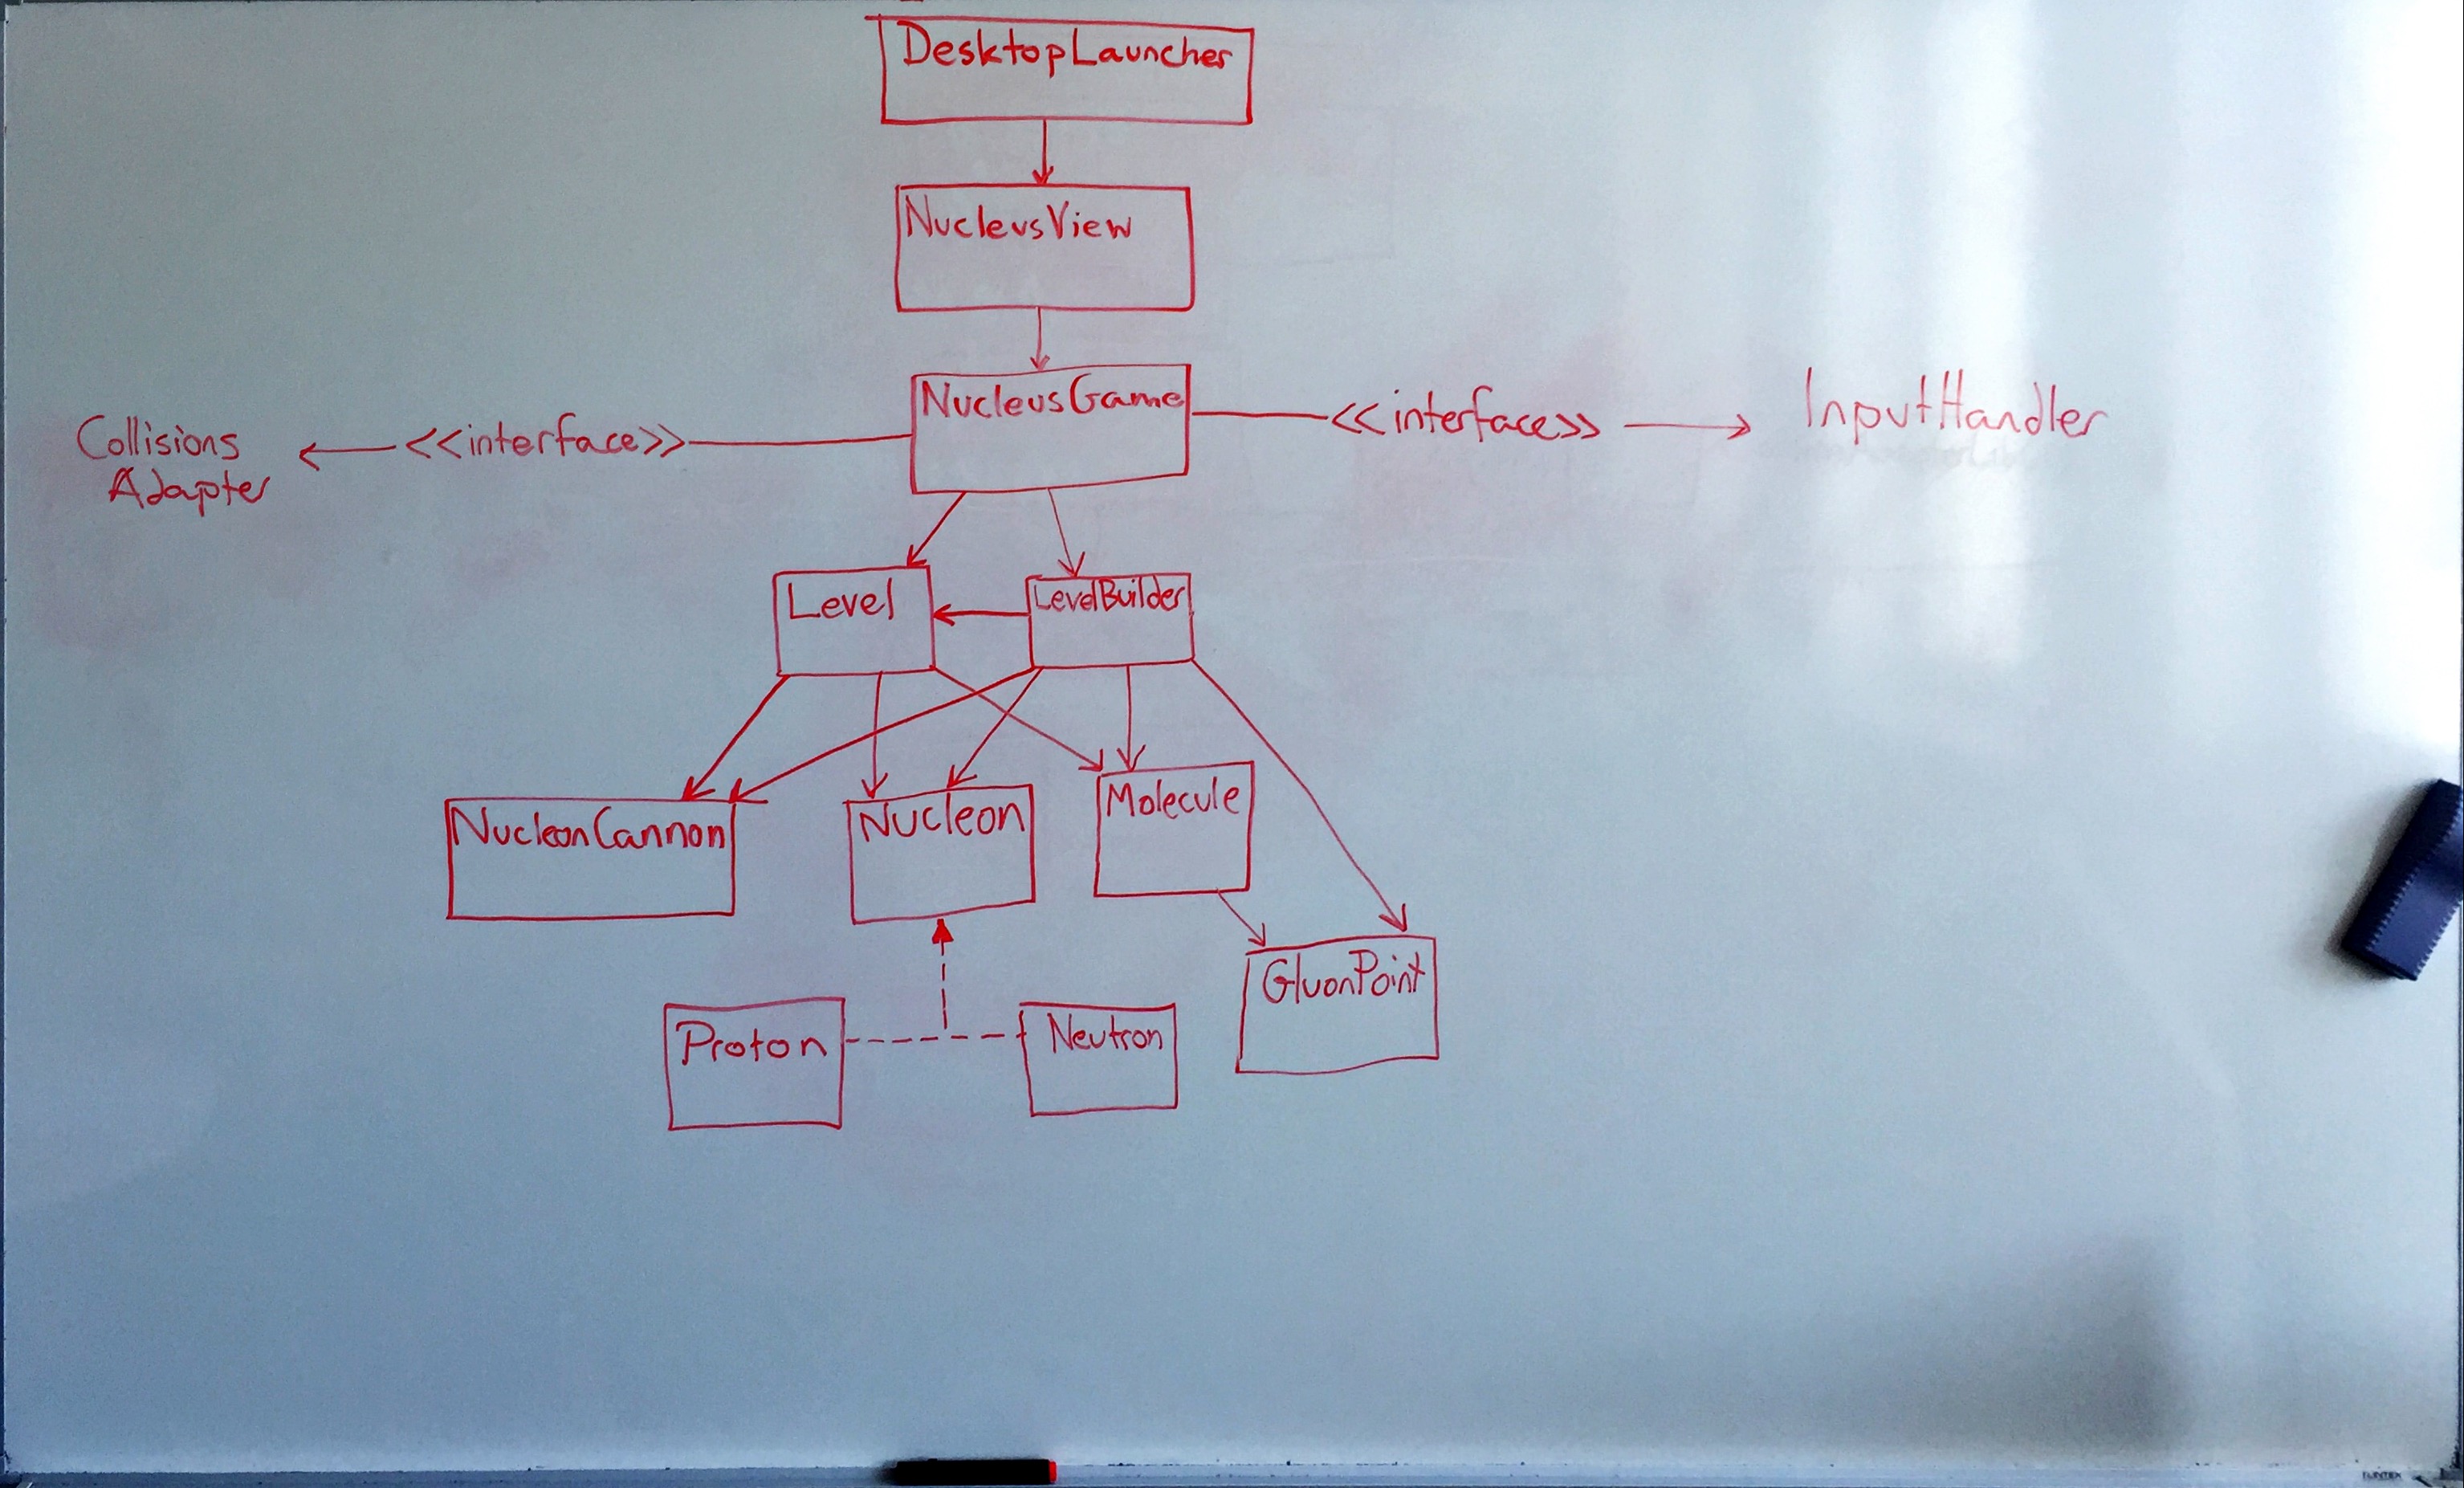 DesktopLauncher
NucleusView
NucleusGame
Collisions
Adapter
<<interface>>
<<interface>>
InputHandler
Level
LevelBuilder
NucleonCannon
Nucleon
Molecule
GluonPoint
Proton
Neutron